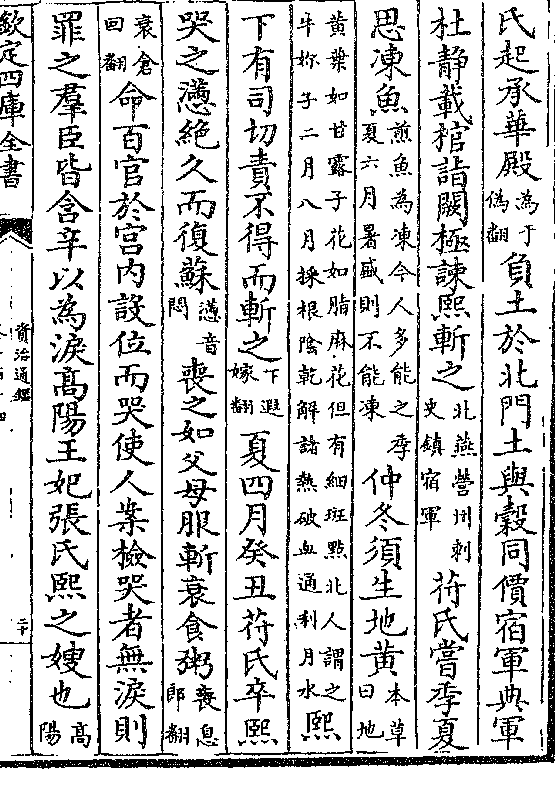 氏起承華殿為于偽翻負土於北門土與穀同價宿軍典軍
杜靜載棺詣闕極諫熙斬之北燕營州刺史鎮宿軍苻氏嘗季夏
思凍魚煎魚為凍今人多能之季夏六月暑盛則不能凍仲冬須生地黄本草曰地
黄葉如甘露子花如脂麻花但有細斑㸃北人謂之牛妳子二月八月採根陰乾解諸熱破血通利月水熙
下有司切責不得而斬之下遐嫁翻夏四月癸丑苻氏卒熙
哭之懣絶久而復蘇懣音悶喪之如父母服斬衰食粥喪息郎翻
衰倉回翻命百官於宫内設位而哭使人案檢哭者無淚則
罪之羣臣皆含辛以為淚髙陽王妃張氏熙之嫂也髙陽
欽定四庫全書
資治通鑑
二十